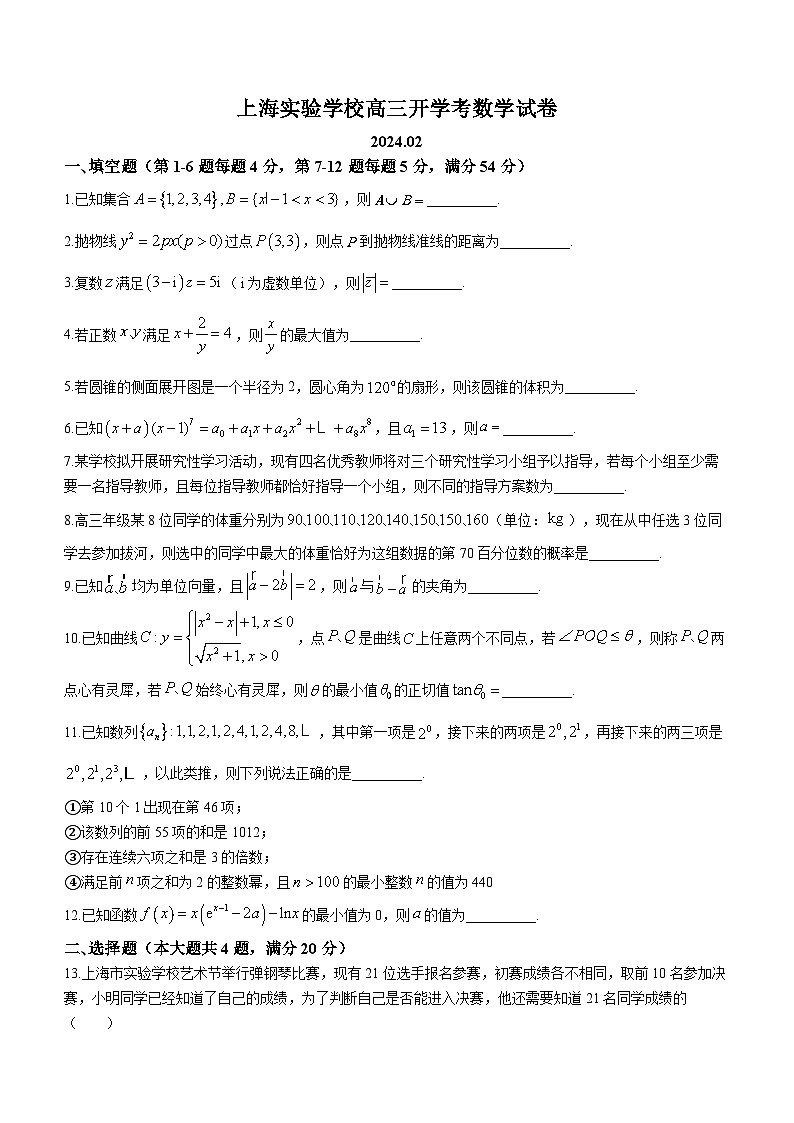 上海实验学校高三开学考数学试卷
2024.02
一、填空题（第1-6题每题4分，第7-12题每题5分，满分54分）
1.已知集合 A={1,2,3,4},B={x|-1<x<3}，则 A∪B=__________.
2.抛物线 y²=2px(p>0) 过点 P(3,3)，则点 P 到抛物线准线的距离为__________.
3.复数 z 满足 (3-i)z=5i（i 为虚数单位），则 |z̅|=__________.
4.若正数 x、y 满足 x+2/y=4，则 x/y 的最大值为__________.
5.若圆锥的侧面展开图是一个半径为2，圆心角为120°的扇形，则该圆锥的体积为__________.
6.已知 (x+a)(x-1)⁷=a₀+a₁x+a₂x²+L +a₈x⁸，且 a₁=13，则 a=__________.
7.某学校拟开展研究性学习活动，现有四名优秀教师将对三个研究性学习小组予以指导，若每个小组至少需
要一名指导教师，且每位指导教师都恰好指导一个小组，则不同的指导方案数为__________.
8.高三年级某8位同学的体重分别为90、100、110、120、140、150、150、160（单位：kg），现在从中任选3位同
学去参加拔河，则选中的同学中最大的体重恰好为这组数据的第70百分位数的概率是__________.
9.已知 a、b 均为单位向量，且 |a-2b|=2，则 a 与 b-a 的夹角为__________.
10.已知曲线 C:y={|x²-x|+1,x≤0; √(x²+1),x>0，点 P、Q 是曲线 C 上任意两个不同点，若 ∠POQ≤θ，则称 P、Q 两
点心有灵犀，若 P、Q 始终心有灵犀，则 θ 的最小值 θ₀ 的正切值 tanθ₀=__________.
11.已知数列 {aₙ}:1,1,2,1,2,4,1,2,4,8,L ，其中第一项是 2⁰，接下来的两项是 2⁰,2¹，再接下来的两三项是
2⁰,2¹,2³,L ，以此类推，则下列说法正确的是__________.
①第10个1出现在第46项；
②该数列的前55项的和是1012；
③存在连续六项之和是3的倍数；
④满足前 n 项之和为2的整数幂，且 n>100 的最小整数 n 的值为440
12.已知函数 f(x)=x(eˣ⁻¹-2a)-lnx 的最小值为0，则 a 的值为__________.
二、选择题（本大题共4题，满分20分）
13.上海市实验学校艺术节举行弹钢琴比赛，现有21位选手报名参赛，初赛成绩各不相同，取前10名参加决
赛，小明同学已经知道了自己的成绩，为了判断自己是否能进入决赛，他还需要知道21名同学成绩的
（　　）